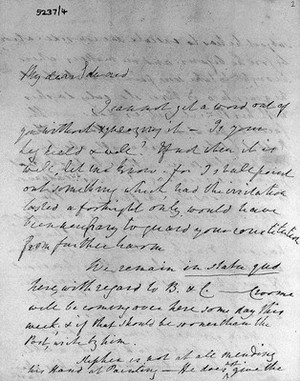 5237/4
2
My dear Edward
I cannot get a word out of
you without squeezing it - Is your
leg healed & well? If not then it is
well, let me know. for I shall point
out something which had the irritation
lasted a fortnight only would have
been necessary to guard your constitution
from further harm.
We remain in statu quo
here with regard to B. & C
will be coming over here some day this
week. & if that should be sooner than the
Post, write by him.
Stephen is not at all mending
his hand at Painting - He does give the